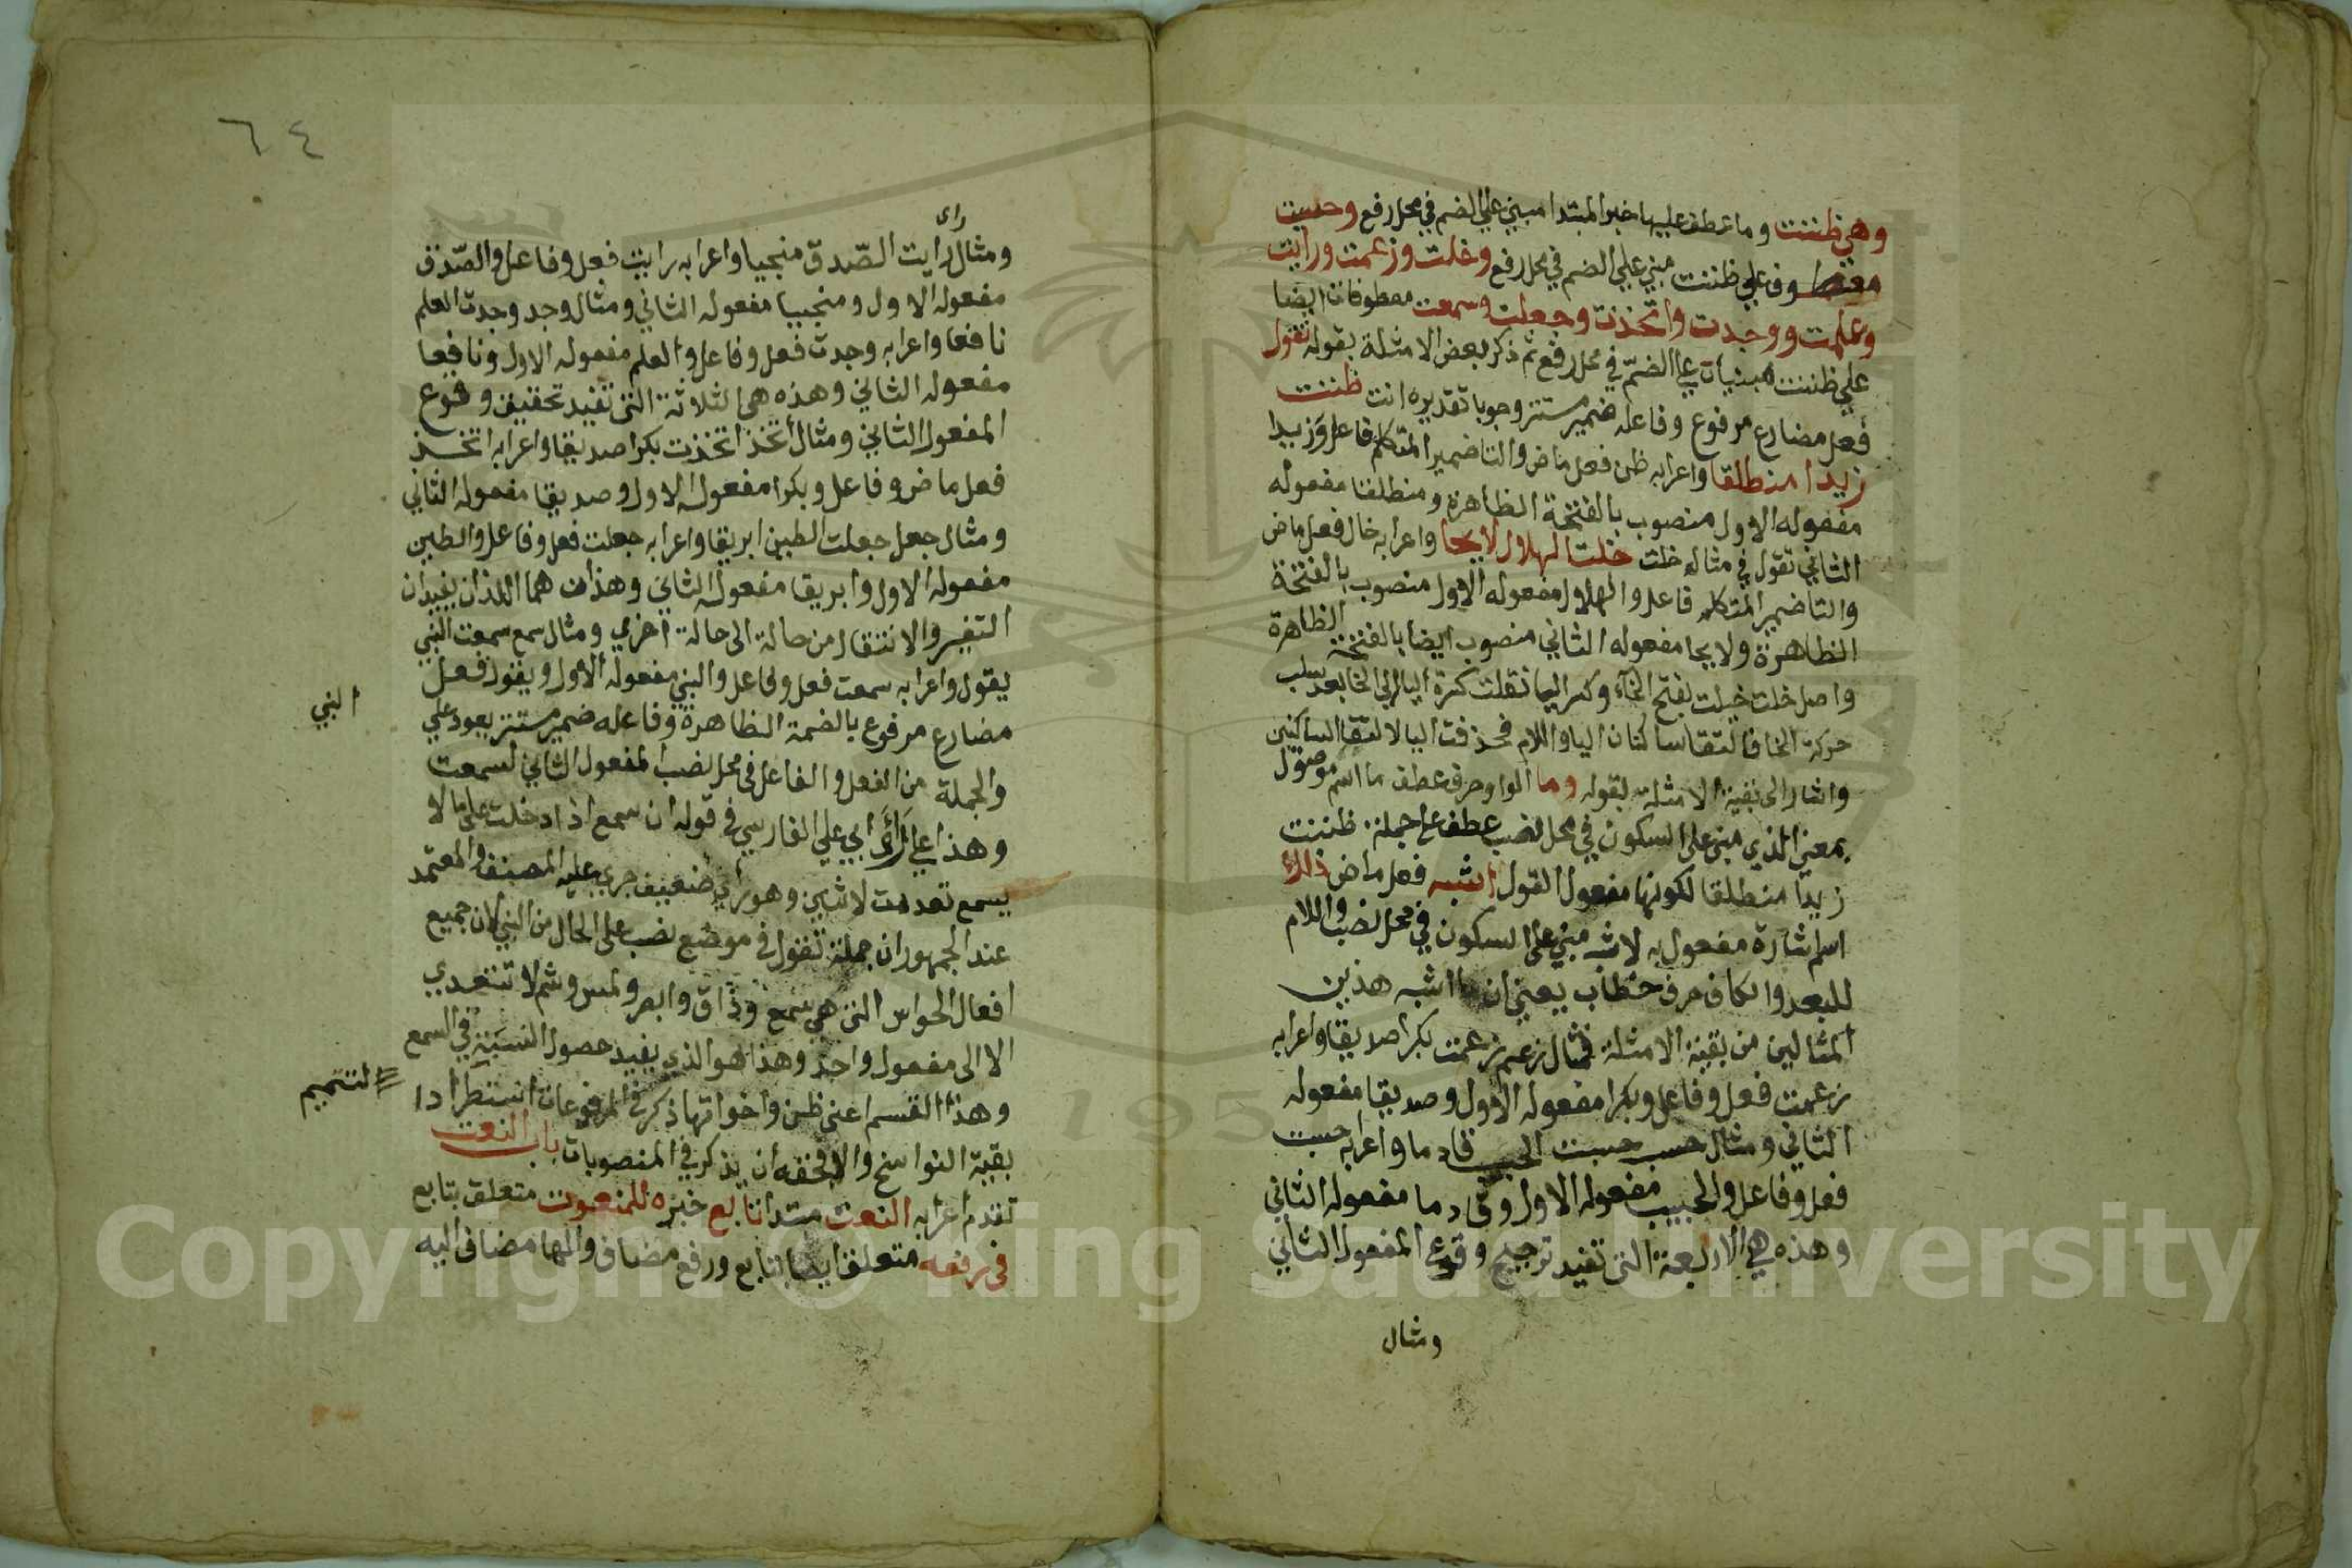 وهي ظننت وما عطف عليها خبر المبتدا مبني علي الضم في محل رفع وحسبت
وفاعلي ظننت مبني علي الضم في محل رفع وخلت وزعمت ورايت
وعلمت ووجدت واتخذت وجعلت وسمعت معطوفات ايضا
علي ظننت مبنيات علي الضمّ في محل رفع ثم ذكر بعض الامثلة بقوله تقول
فعل مضارع مرفوع وفاعله ضمير مستتر وجوبا تقديره انت ظننت
زيدا منطلقا واعرابه ظن فعل ماض والتا ضمير المتكلم فاعل وزيدا
مفعوله الاول منصوب بالفتحة الظاهرة ومنطلقا مفعوله
الثاني تقول في مثال خلت خلت الهلال لايحا واعرابه خال فعل ماض
والتا ضمير المتكلم فاعل والهلال مفعوله الاول منصوب بالفتحة
الظاهرة ولايحا مفعوله الثاني منصوب ايضا بالفتحة الظاهرة
واصل خلت خيلت بفتح الخاء وكسر اليا نقلت كسرة اليا الي الخا بعد سلب
حركة الخا فالتقا ساكنان اليا واللام فحذفت اليا لالتقا الساكنين
واشار الى بقية الامثلة بقوله وما الواو حرف عطف ما اسم موصول
بمعني الذي مبني على السكون في محل نصب عطف علي جملة ظننت
زيدا منطلقا لكونها مفعول القول اشبه فعل ماض ذلك
اسم اشارة مفعول به لاشبه مبني على السكون في محل نصب واللام
للبعد والكاف حرف خطاب يعني ان ما اشبه هذين
المثالين من بقية الامثلة فمثال زعم زعمت بكرا صديقا واعرابه
زعمت فعل وفاعل وبكرا مفعوله الاول وصديقا مفعوله
الثاني ومثال حسب حسبت الحبيب قادما واعرابه حسبت
فعل وفاعل والحبيب مفعوله الاول وقادما مفعوله الثاني
وهذه هي الاربعة التي تفيد ترجيح وقوع المفعول الثاني
ومثال
٦٤
راى
ومثال رايت الصّدق منجيا واعرابه رايت فعل وفاعل والصّدق
مفعوله الاول ومنجيا مفعوله الثاني ومثال وجد وجدت العلم
نافعا واعرابه وجدت فعل وفاعل والعلم مفعوله الاول ونافعا
مفعوله الثاني وهذه هي الثلاثة التي تفيد تحقيق وقوع
المفعول الثاني ومثال اتخذ اتخذت بكرا صديقا واعرابه اتخذ
فعل ماض وفاعل وبكرا مفعوله الاول وصديقا مفعوله الثاني
ومثال جعل جعلت الطين ابريقا واعرابه جعلت فعل وفاعل والطين
مفعوله الاول وابريقا مفعوله الثاني وهذان هما اللذان يفيدان
التغير والانتقال من حالة الى حالة اخري ومثال سمع سمعت النبي
يقول واعرابه سمعت فعل وفاعل والنبي مفعوله الاول ويقول فعل
مضارع مرفوع بالضمة الظاهرة وفاعله ضمير مستتر يعود علي
النبي
والجملة من الفعل والفاعل في محل نصب المفعول الثاني لسمعت
وهذا علي رأي ابي علي الفارسي في قوله ان سمع اذا دخلت على ما لا
يسمع تعدت لاثنين وهو راي ضعيف جري عليه المصنف والمعتمد
عند الجمهور ان جملة تقول في موضع نصب على الحال من النبي لان جميع
افعال الحواس التي هي سمع وذاق وابصر ولمس وشم لا تتعدي
الا الى مفعول واحد وهذا هو الذي يفيد حصول النسبة في السمع
وهذا القسم اعني ظن واخواتها ذكر في المرفوعات استطرادا
لتتميم
بقية النواسخ والا فحقه ان يذكر في المنصوبات باب النعت
تقدم اعرابه النعت مبتدا تابع خبره للمنعوت متعلق بتابع
في رفعه متعلق ايضا بتابع ورفع مضاف والها مضاف اليه
Copyright © King Saud University
195